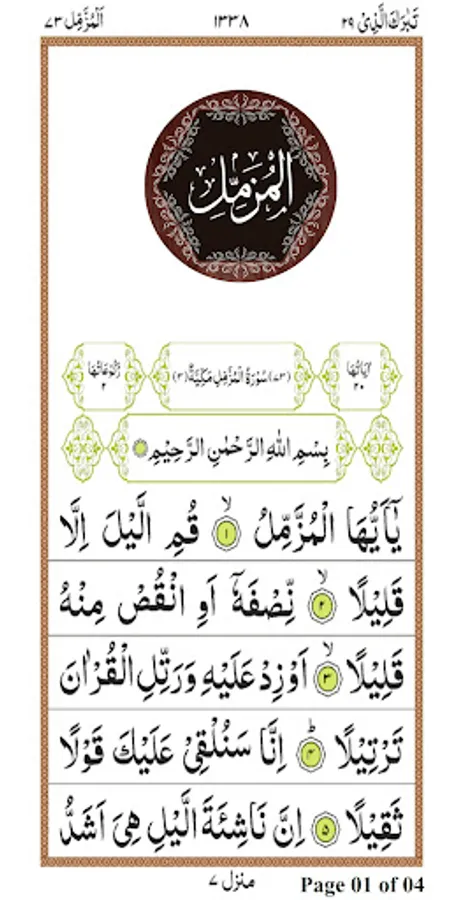 تَبٰرَكَ الَّذِیْ ۲۹ ۱۳۳۸ اَلْمُزَّمِّل ۷۳
المُزَّمِّل
اٰیَاتُهَا ۲۰ (۷۳) سُوْرَةُ الْمُزَّمِّلِ مَكِّیَّةٌ (۳) رُكُوْعَاتُهَا ۲
بِسْمِ اللّٰهِ الرَّحْمٰنِ الرَّحِیْمِ
یٰۤاَیُّهَا الْمُزَّمِّلُ ۙ‏﴿۱﴾ قُمِ الَّیْلَ اِلَّا
قَلِیْلًا ۙ‏﴿۲﴾ نِّصْفَهٗۤ اَوِ انْقُصْ مِنْهُ
قَلِیْلًا ۙ‏﴿۳﴾ اَوْ زِدْ عَلَیْهِ وَ رَتِّلِ الْقُرْاٰنَ
تَرْتِیْلًا ؕ‏﴿۴﴾ اِنَّا سَنُلْقِیْ عَلَیْكَ قَوْلًا
ثَقِیْلًا ﴿۵﴾ اِنَّ نَاشِئَةَ الَّیْلِ هِیَ اَشَدُّ
منزل ۷ Page 01 of 04